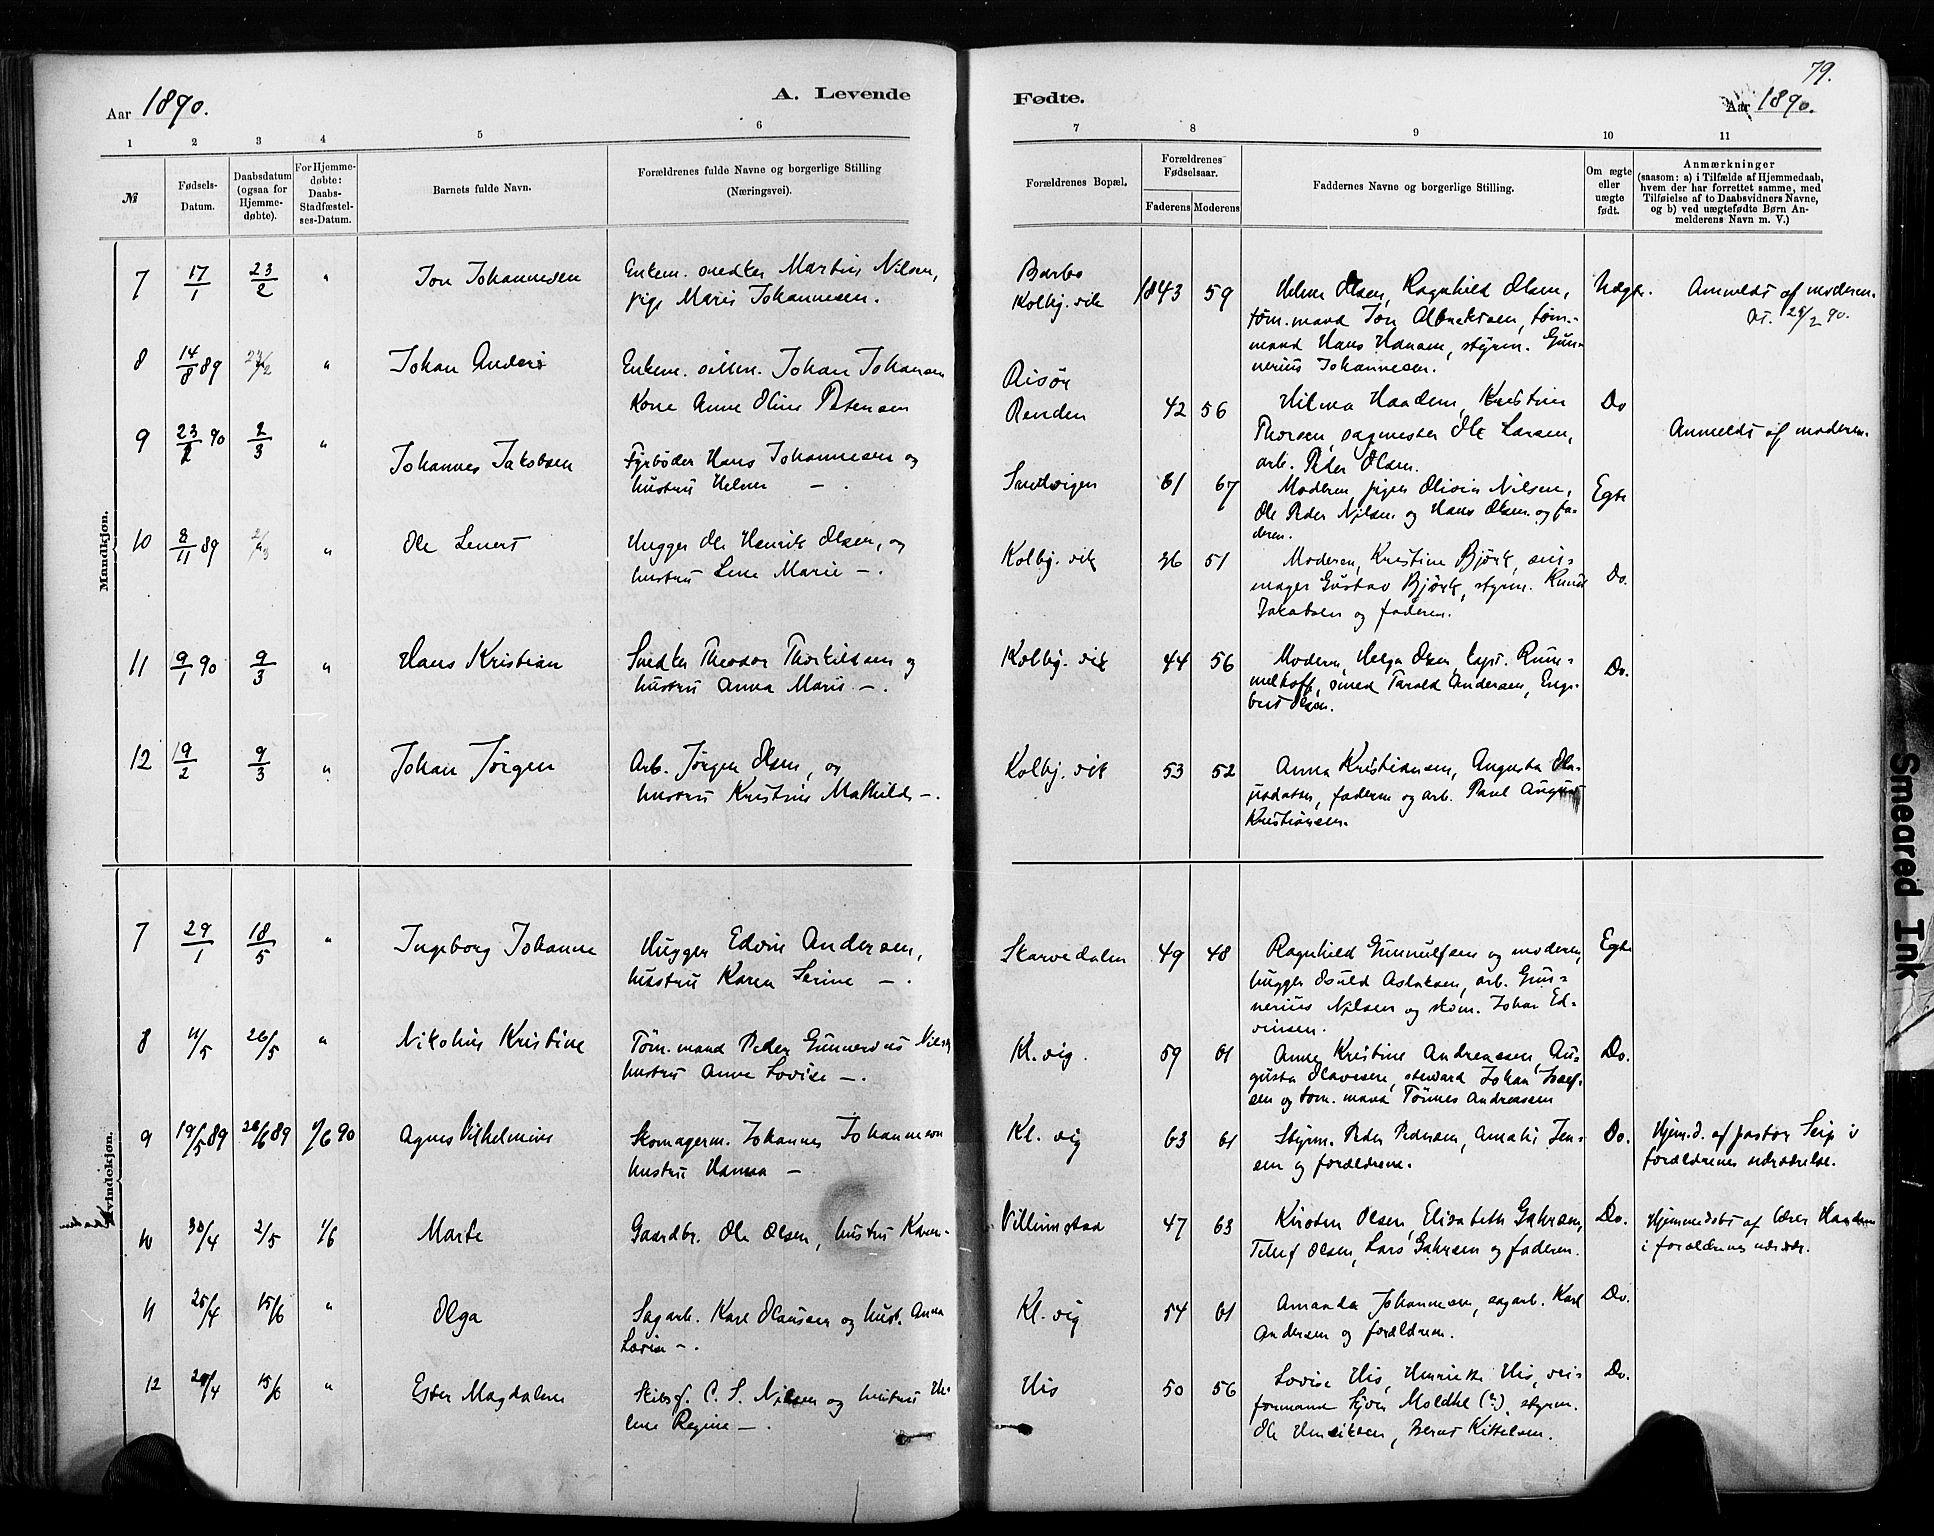 79.
Aar 1890.
A. Levende
Fødte.
Aar 1890.
1 2 3 4 5 6 7 8 9 10 11
№
Fødsels-
Datum.
Daabsdatum
(ogsaa for
Hjemme-
døbte).
For Hjemme-
døbte:
Daabs-
Stadfæstel-
ses-Datum.
Barnets fulde Navn.
Forældrenes fulde Navne og borgerlige Stilling
(Næringsvei).
Forældrenes Bopæl.
Forældrenes
Fødselsaar.
Faderens Moderens
Faddernes Navne og borgerlige Stilling.
Om ægte
eller
uægte
født.
Anmærkninger
(saasom: a) i Tilfælde af Hjemmedaab,
hvem der har forrettet samme, med
Tilføielse af to Daabsvidners Navne,
og b) ved uægtefødte Børn An-
melderens Navn m. V.)
Mandkjøn.
7 17/1 23/2 " Jon Johannesen
Enkem. snedker Martin Nilsen,
pige Marie Johannesen.
Barbo
Kolbj. vik 1843 59
Helene Olsen, Ragnhild Olsen,
tøm.mand Jon Albrektsen, tøm-
mand Hans Hansen, styrm. Gun-
nerius Johannesen.
Uægte.
Anmeldt af moderen.
8 14/8 89 " Johan Anders
Enkem. Johan Johansen
Kone Anne Oline Petersen
Risør
Renden 42 56
Hilma Haaden, Kristine
Thorsen, sagmester Ole Larsen,
arb. Peder Olsen.
Do
Anmeldt af moderen.
9 23/2 90 2/3 " Johannes Jakobsen
Fyrbøder Hans Johannesen og
hustru Helene — .
Sandvigen 61 67
Moderen, pigen Olivia Nilsen,
Ole Peder Nilsen og Hans Olsen og fa-
deren.
Egte
10 8/11 89 " Ole Lenert
Hugger Ole Henrik Olsen, og
hustru Lene Marie — .
Kolbj. vik 26 51
Moderen, Kristine Björk, sei-
mager Gustav Björk, styrm. Knud
Jakobsen og faderen.
Do.
11 9/1 90 9/3 " Hans Kristian
Snedker Theodor Thorkildsen og
hustru Anna Marie — .
Kolbj. vik 44 56
Moderen, Helga Olsen, capt. Rum-
melhoff, smed Tarald Andersen, Enge-
bret Olsen.
Do.
12 19/2 9/3 " Johan Jørgen
Arb. Jørgen Olsen, og
hustru Kristine Mathilde — .
Kolbj. vik 53 52
Anna Kristiansen, Augusta Ola-
usdatter, faderen og arb. Paul August
Kristiansen.
Kvindekjøn.
7 29/1 18/5 " Ingeborg Johanne
Hugger Edvin Andersen,
hustru Karen Serine — .
Skarvedalen 49 48
Ragnhild Gunnulfsen og moderen,
hugger Osuld Aslaksen, arb. Gun-
nerius Nilsen og skom. Johan Ed-
vinsen.
Egte
8 11/5 26/5 " Nikoline Kristine
Tøm.mand Peder Gunnerius Nilsen
hustru Anne Lovise — .
Kl. vig. 59 61
Anne Kristine Andreassen, Au-
gusta Olavesen, steward Johan Josef-
sen og tøm. mand Tönnes Andreassen
Do.
9 19/5 89 26/6 89 1/6 90 Agnes Vilhelmine
Skomagerm. Johannes Johannesen
hustru Hanna —
Kl. vig 63 61
Styrm. Peder Pedersen, Amalie Jen-
sen og forældrene.
Do.
Hjem.d. af pastor Seip i
forældrenes nærværelse.
10 30/4 2/5 1/6 Marte
Gaardbr. Ole Olsen, hustru Karen —
Villumstad 47 63
Kirsten Olsen, Elisabeth Gahrsen,
Tellef Olsen, Lars Gahrsen og faderen.
Do.
Hjemmedøbt af lærer Haaden
i forældrenes nærvær.
11 25/4 15/6 " Olga
Sagarb. Karl Olausen og hust. Anna
Lovise — .
Kl. vig 54 61
Amanda Johannesen, sagarb. Karl
Andersen og forældrene.
Do.
12 20/4 15/6 " Ester Magdalene
Skibsf. C. S. Nilsen og hustru He-
lene Regine — .
His 50 56
Lovise His, Henriette His, vei-
formand Sjøve Moldkl (?), styrm.
Ole Henriksen, Bernt Kittelsen.
Do.
Smeared Ink